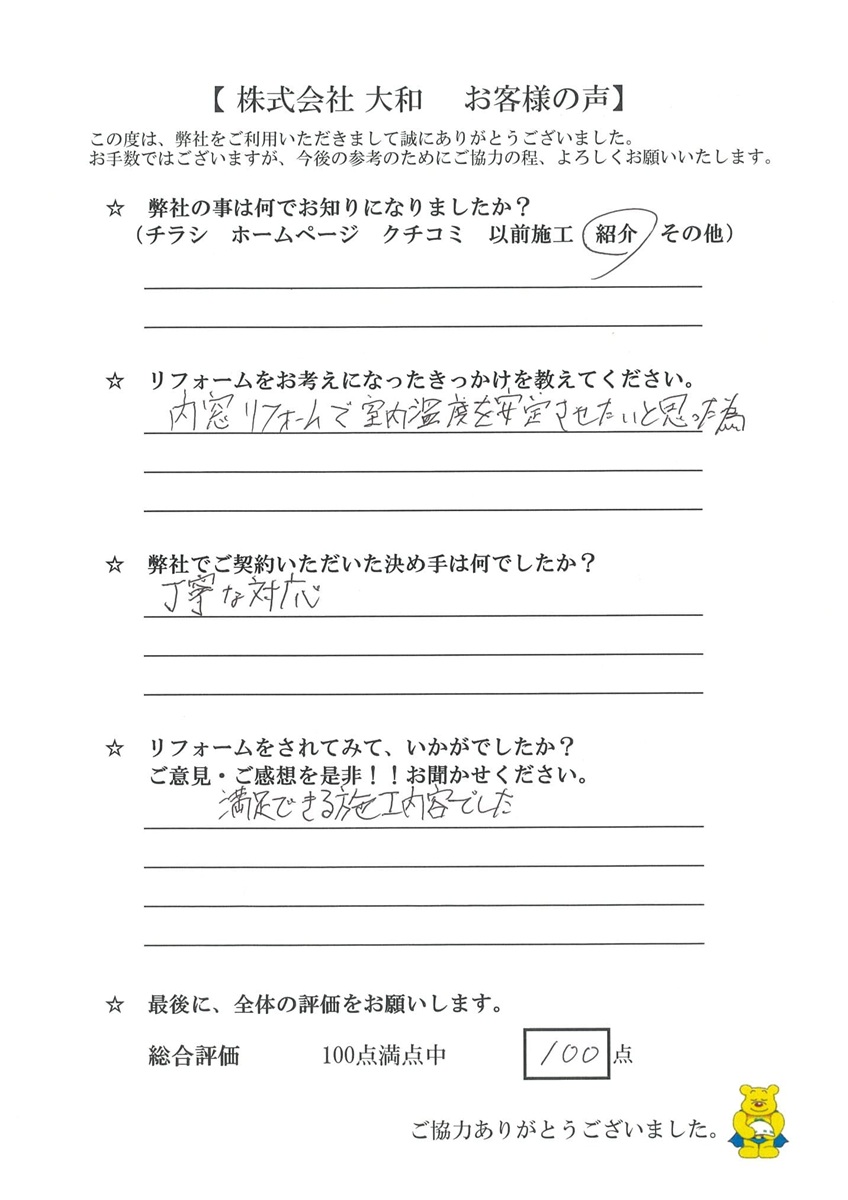 【 株式会社 大和　お客様の声】
この度は、弊社をご利用いただきまして誠にありがとうございました。
お手数ではございますが、今後の参考のためにご協力の程、よろしくお願いいたします。
☆　弊社の事は何でお知りになりましたか？
（チラシ　ホームページ　クチコミ　以前施工　紹介　その他）
☆　リフォームをお考えになったきっかけを教えてください。
内窓リフォームで室内温度を安定させたいと思った為
☆　弊社でご契約いただいた決め手は何でしたか？
丁寧な対応
☆　リフォームをされてみて、いかがでしたか？
ご意見・ご感想を是非！！お聞かせください。
満足できる施工内容でした
☆　最後に、全体の評価をお願いします。
総合評価　100点満点中　100点
ご協力ありがとうございました。